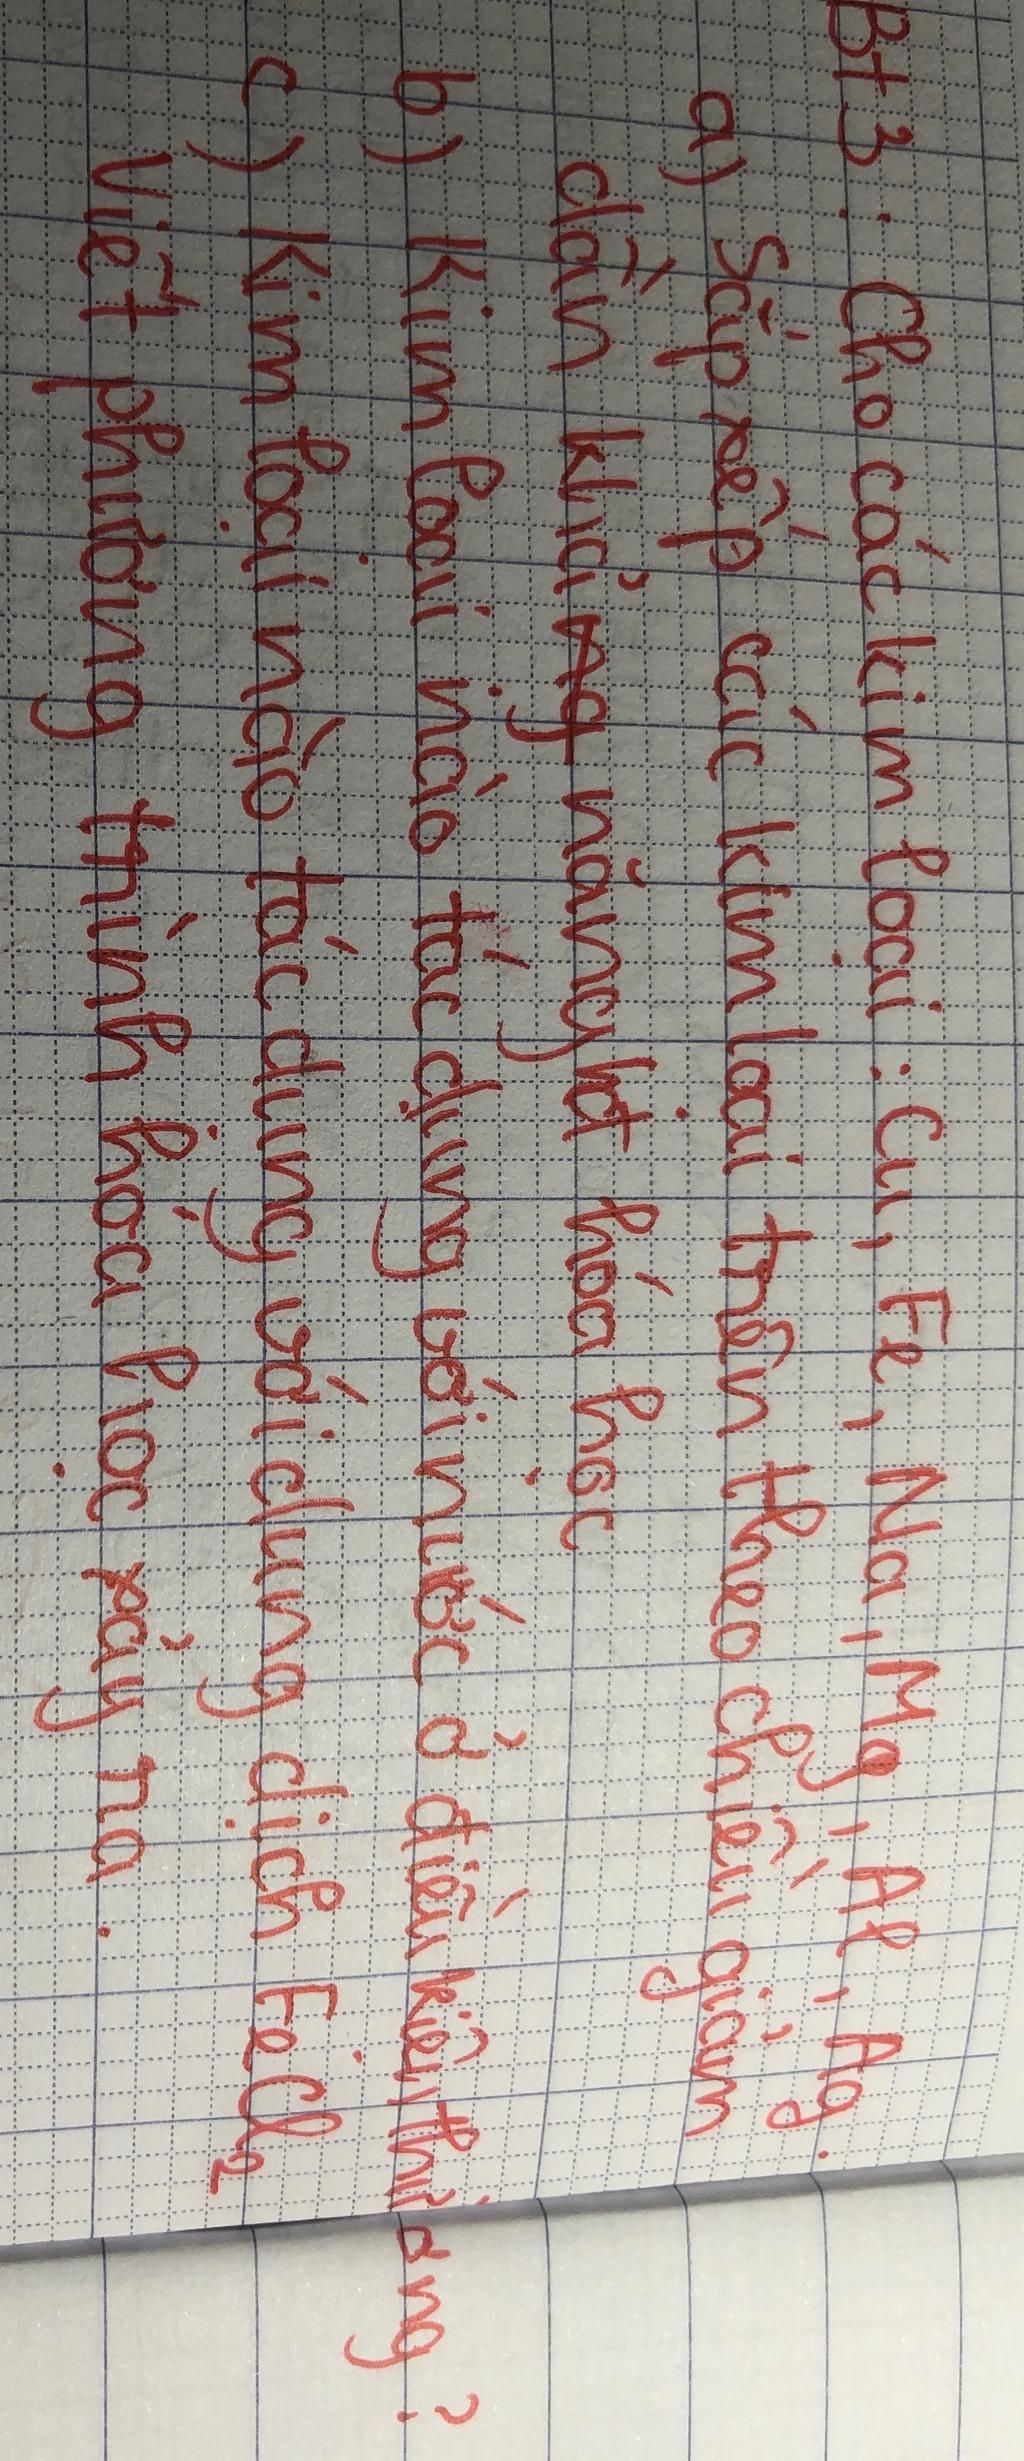 Bt3: Cho các kim loại: Cu, Fe, Na, Mg, Al, Ag.
a) Sắp xếp các kim loại trên theo chiều giảm
dần khả năng hđ hóa học
b) Kim loại nào tác dụng với nước ở điều kiện thường?
c) Kim loại nào tác dụng với dung dịch FeCl2
Viết phương trình hóa học xảy ra.